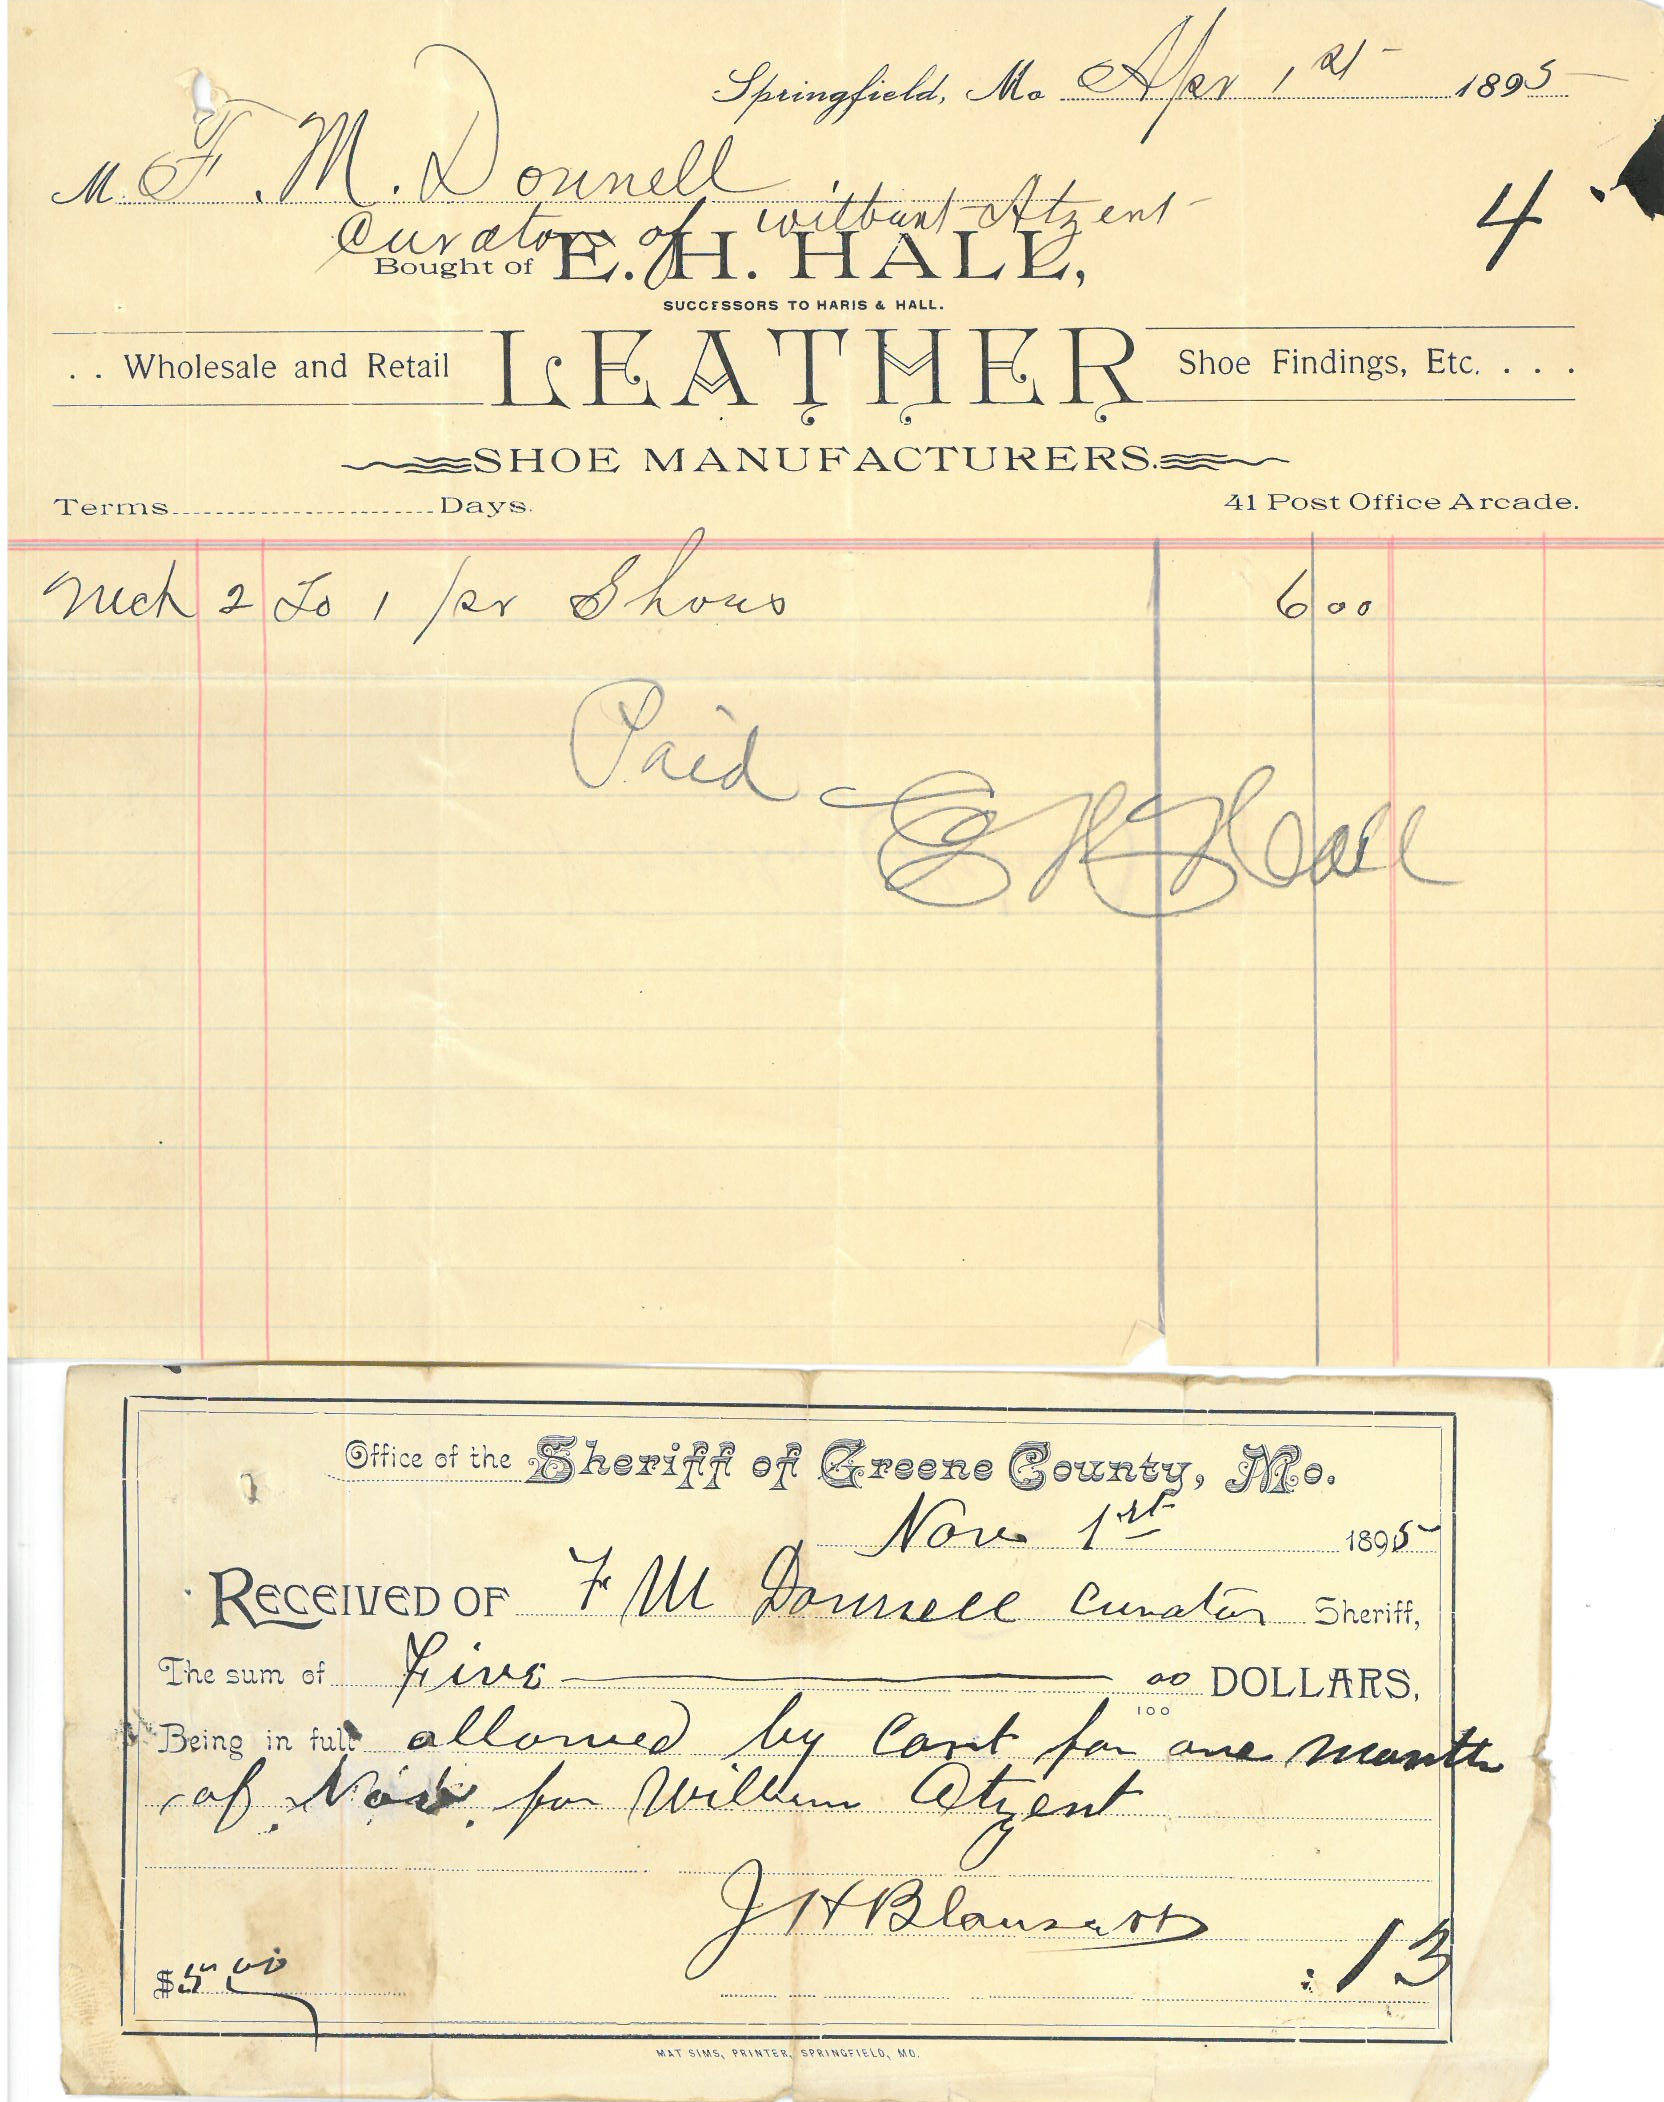 Springfield, Mo Apr 1st 1895
M F. M. Donnell
Curator of Wilburt Atzent
4
Bought of E. H. HALL,
SUCCESSORS TO HARIS & HALL.
. . Wholesale and Retail LEATHER Shoe Findings, Etc. . . .
SHOE MANUFACTURERS.
Terms Days.
41 Post Office Arcade.
Mch 2 To 1 pr Shoes 6 00
Paid
E H Hall
Office of the Sheriff of Greene County, Mo.
Nov 1st 1895
RECEIVED OF F M Donnell Curator Sheriff,
The sum of Five 00/100 DOLLARS,
Being in full allowed by Cort for one month
of Nov. for Wilburn Atzent
J H
13
$5.00
MAT SIMS, PRINTER, SPRINGFIELD, MO.